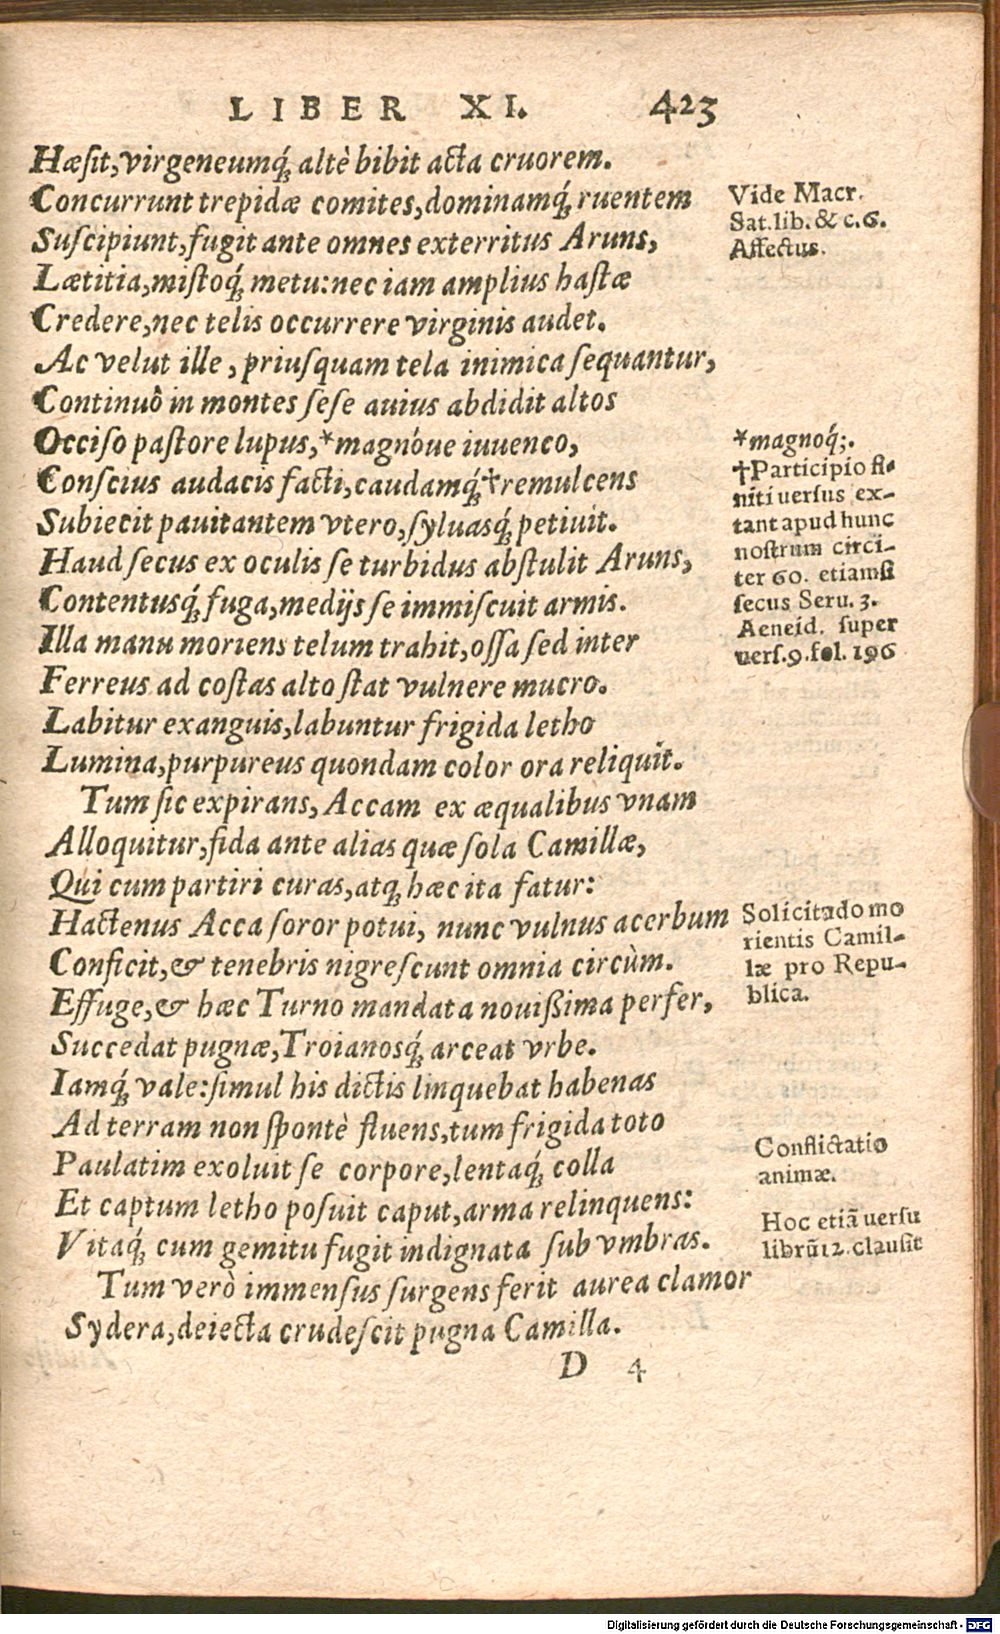 LIBER XI. 423
Hæſit, virgeneumq́; altè bibit acta cruorem.
Concurrunt trepidæ comites, dominamq́; ruentem
Suſcipiunt, fugit ante omnes exterritus Aruns,
Lætitia, miſtoq́; metu: nec iam amplius haſtæ
Credere, nec telis occurrere virginis audet.
Ac velut ille, priuſquam tela inimica ſequantur,
Continuò in montes ſeſe auius abdidit altos
Occiſo paſtore lupus, *magnóue iuuenco,
Conſcius audacis facti, caudamq́; †remulcens
Subiecit pauitantem vtero, ſyluasq́; petiuit.
Haud ſecus ex oculis ſe turbidus abſtulit Aruns,
Contentusq́; fuga, medijs ſe immiſcuit armis.
Illa manu moriens telum trahit, oſſa ſed inter
Ferreus ad coſtas alto ſtat vulnere mucro.
Labitur exanguis, labuntur frigida letho
Lumina, purpureus quondam color ora reliquit.
Tum ſic expirans, Accam ex æqualibus vnam
Alloquitur, fida ante alias quæ ſola Camillæ,
Qui cum partiri curas, atq; hæc ita fatur:
Hactenus Acca ſoror potui, nunc vulnus acerbum
Conficit, & tenebris nigreſcunt omnia circùm.
Effuge, & hæc Turno mandata nouißima perfer,
Succedat pugnæ, Troianosq́; arceat vrbe.
Iamq́; vale: ſimul his dictis linquebat habenas
Ad terram non ſpontè fluens, tum frigida toto
Paulatim exoluit ſe corpore, lentaq́; colla
Et captum letho poſuit caput, arma relinquens:
Vitaq́; cum gemitu fugit indignata ſub vmbras.
Tum verò immenſus ſurgens ferit aurea clamor
Sydera, deiecta crudeſcit pugna Camilla.
D 4
Vide Macr.
Sat. lib. & c. 6.
Affectus.
*magnoq́;.
†Participio fi-
niti uersus ex-
tant apud hunc
nostrum circi-
ter 60. etiamsi
secus Seru. 3.
Aeneid. super
uers. 9. fol. 196
Solicitudo mo
rientis Camil-
læ pro Repu-
blica.
Conflictatio
animæ.
Hoc etiã uersu
librũ 12. clausit
Digitalisierung gefördert durch die Deutsche Forschungsgemeinschaft - DFG